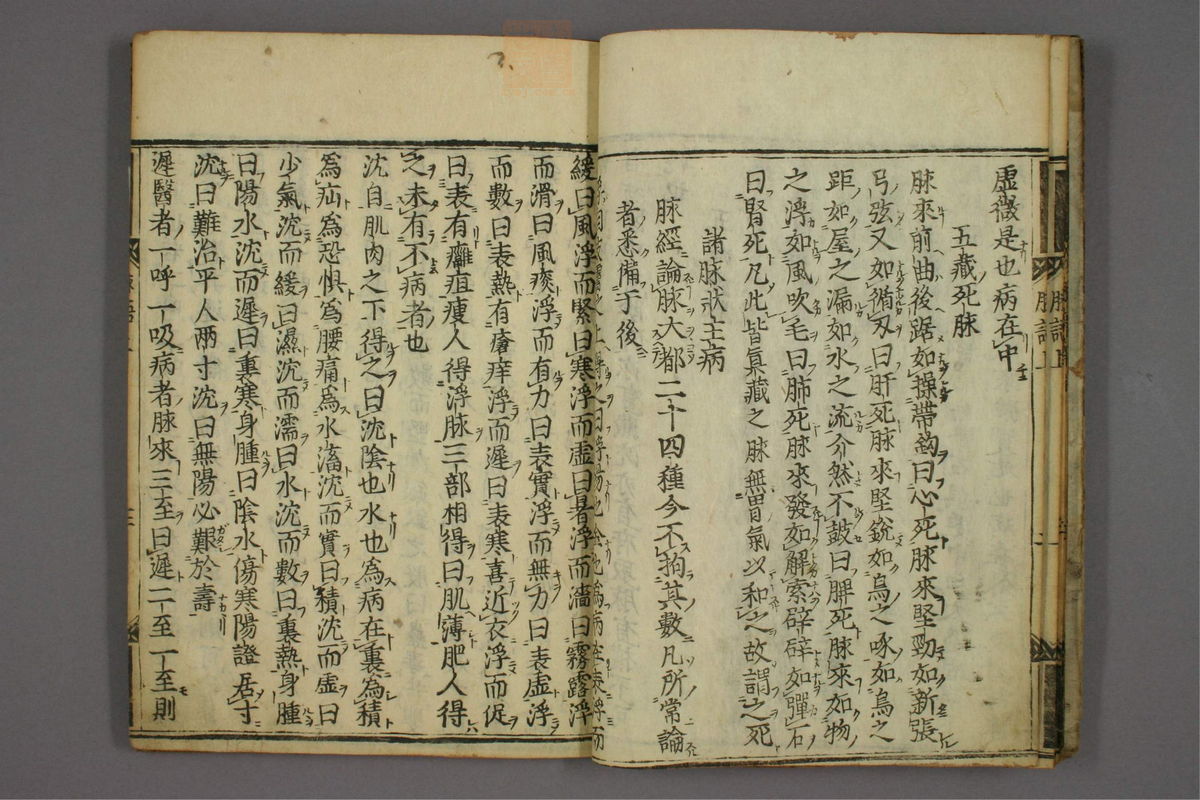 虛微是也病在中
五藏死脉
脉來前曲後踞如操帶鉤曰心死脉來堅勁如新張
弓弦又如循刃曰肝死脉來堅銳如烏之啄如鳥之
距如屋之漏如水之流介然不鼓曰脾死脉來如物
之浮如風吹毛曰肺死脉來發如解索辟辟如彈石
曰腎死凡此皆眞藏之脉無胃氣以和之故謂之死
諸脉狀主病
脉經論脉大都二十四種今不拘其數凡所常論
者悉備于後
緩曰風浮而緊曰寒浮而虛曰暑浮而濇曰霧露浮
而滑曰風痰浮而有力曰表實浮而無力曰表虛浮
而數曰表熱有瘡痒浮而遲曰表寒喜近衣浮而促
曰表有癰疽瘦人得浮脉三部相得曰肌薄肥人得
之未有不病者也
沈自肌肉之下得之曰沈陰也水也為病在裏為積
為疝為恐惧為腰痛為水滀沈而實曰積沈而虛曰
少氣沈而緩曰濕沈而濡曰水沈而數曰裏熱身腫
曰陽水沈而遲曰裏寒身腫曰陰水傷寒陽證居寸
沈曰難治平人兩寸沈曰無陽必艱於壽
遲醫者一呼一吸病者脉來三至曰遲二至一至則
脉語上